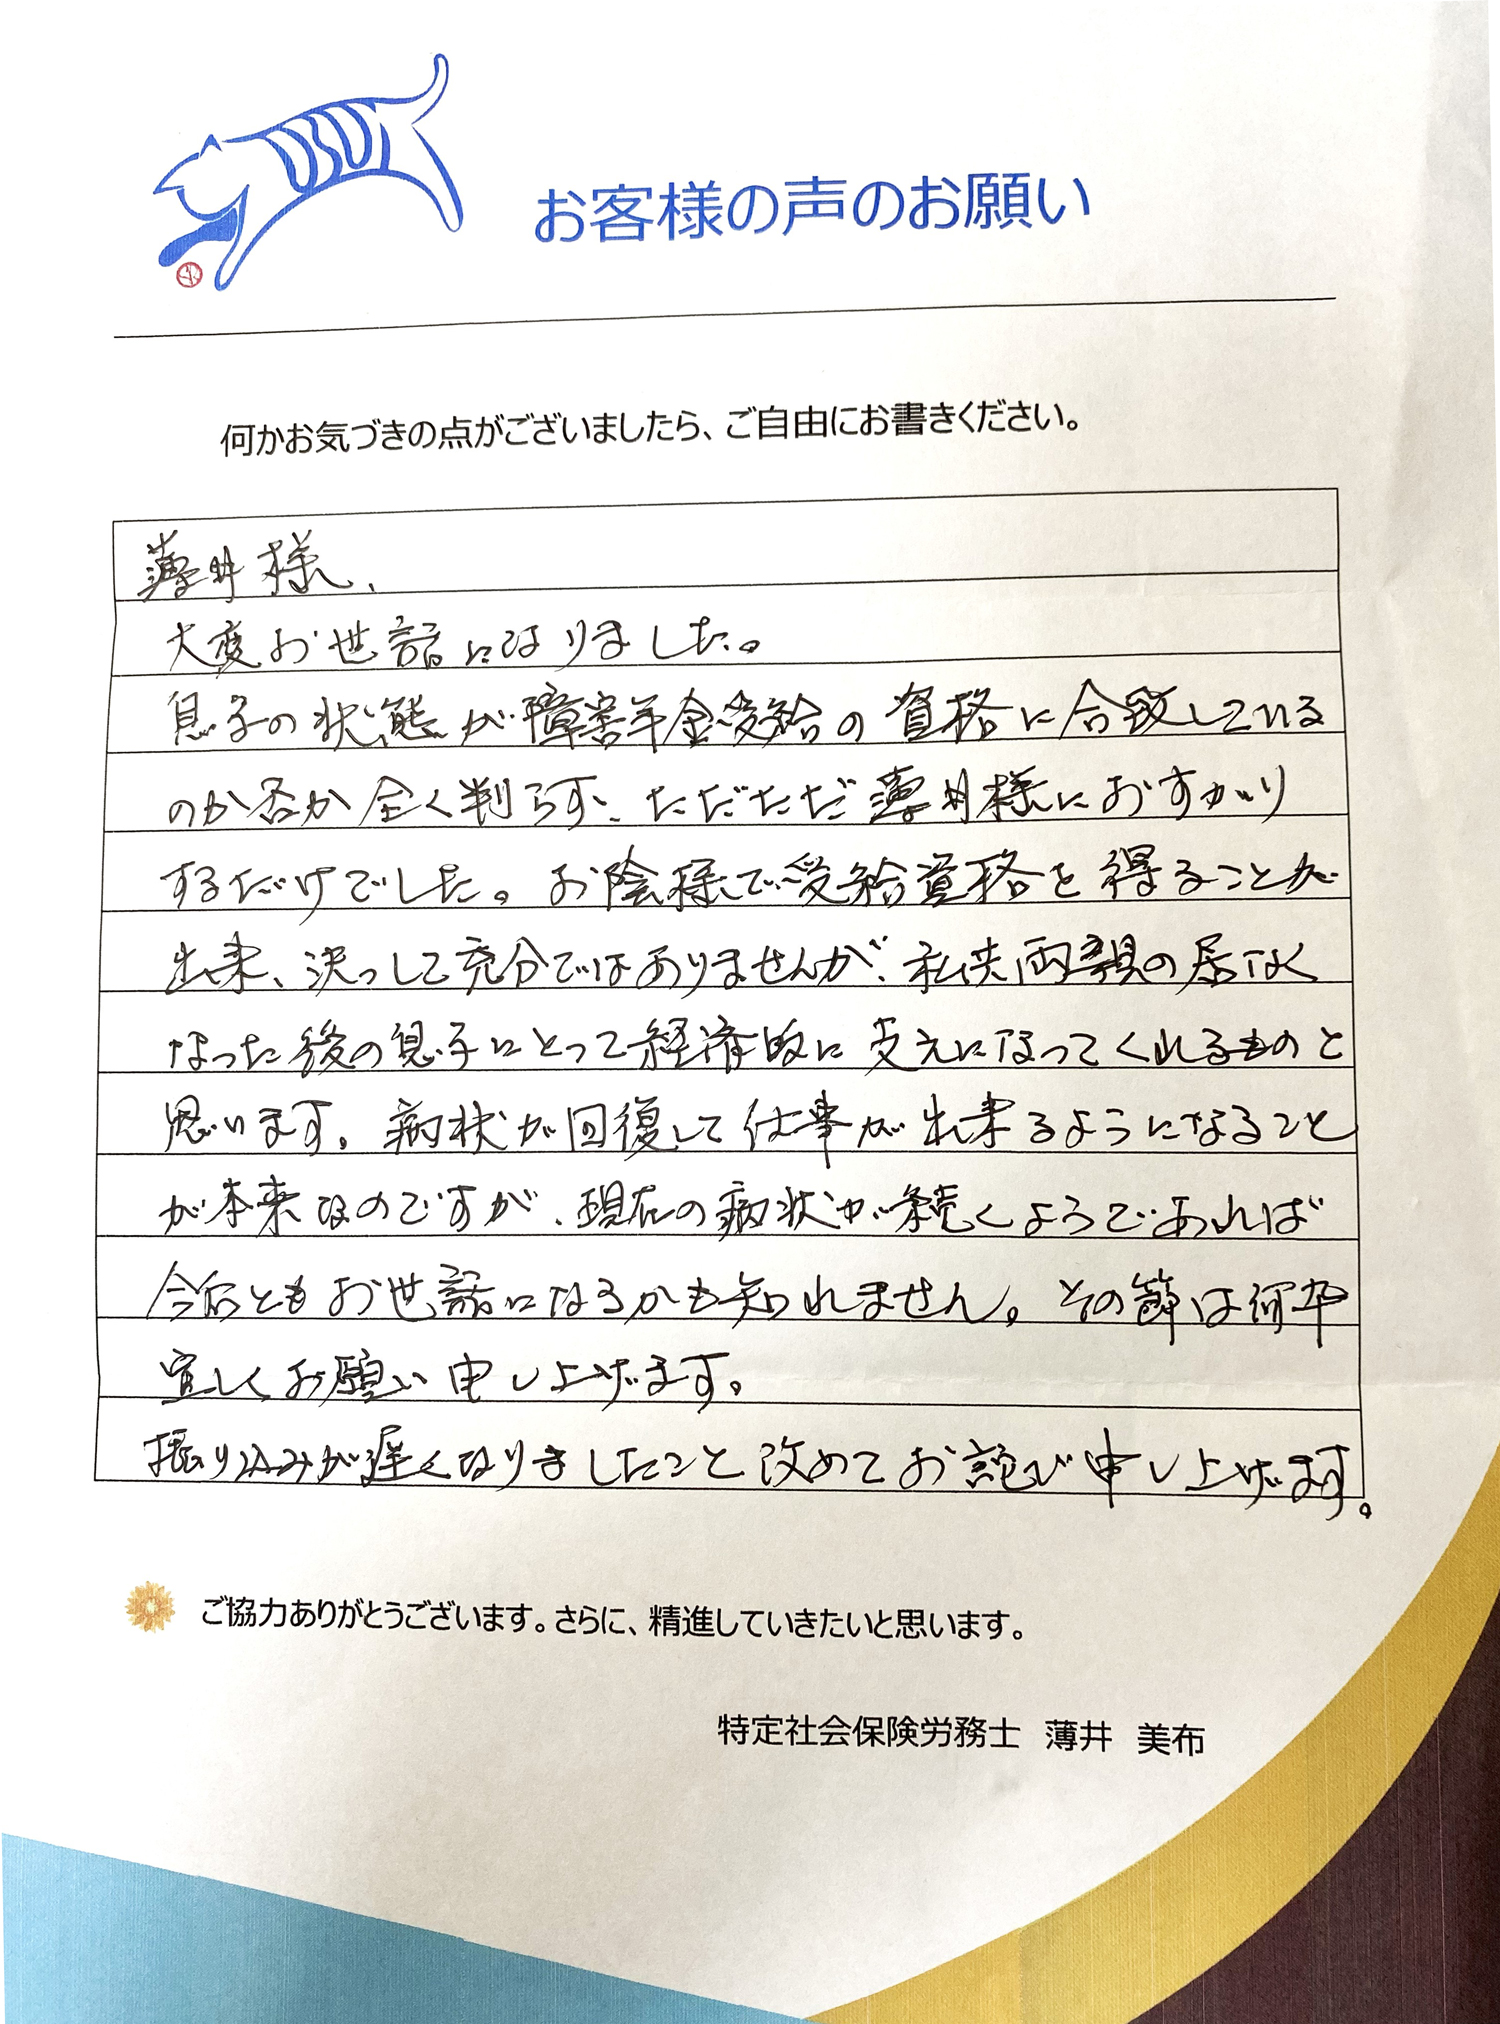 USUI
お客様の声のお願い
何かお気づきの点がございましたら、ご自由にお書きください。
薄井様、
大変お世話になりました。
息子の状態が障害年金受給の資格に合致している
のか否か全く判らず、ただただ薄井様におすがり
するだけでした。お陰様で受給資格を得ることが
出来、決っして充分ではありませんが、私共両親の居なく
なった後の息子にとって経済的に支えになってくれるものと
思います。病状が回復して仕事が出来るようになること
が本来なのですが、現在の病状が続くようであれば
今后ともお世話になるかも知れません。その節は何卒
宜しくお願い申し上げます。
振り込みが遅くなりましたこと改めてお詫び申し上げます。
ご協力ありがとうございます。さらに、精進していきたいと思います。
特定社会保険労務士 薄井 美布